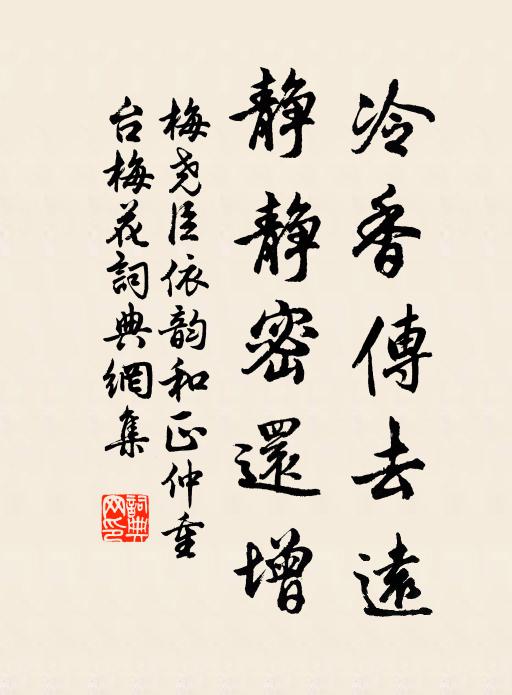 冷香傳去遠
靜靜密還增
梅堯臣依韵和正仲重
台梅花詞典網集
詞典網印